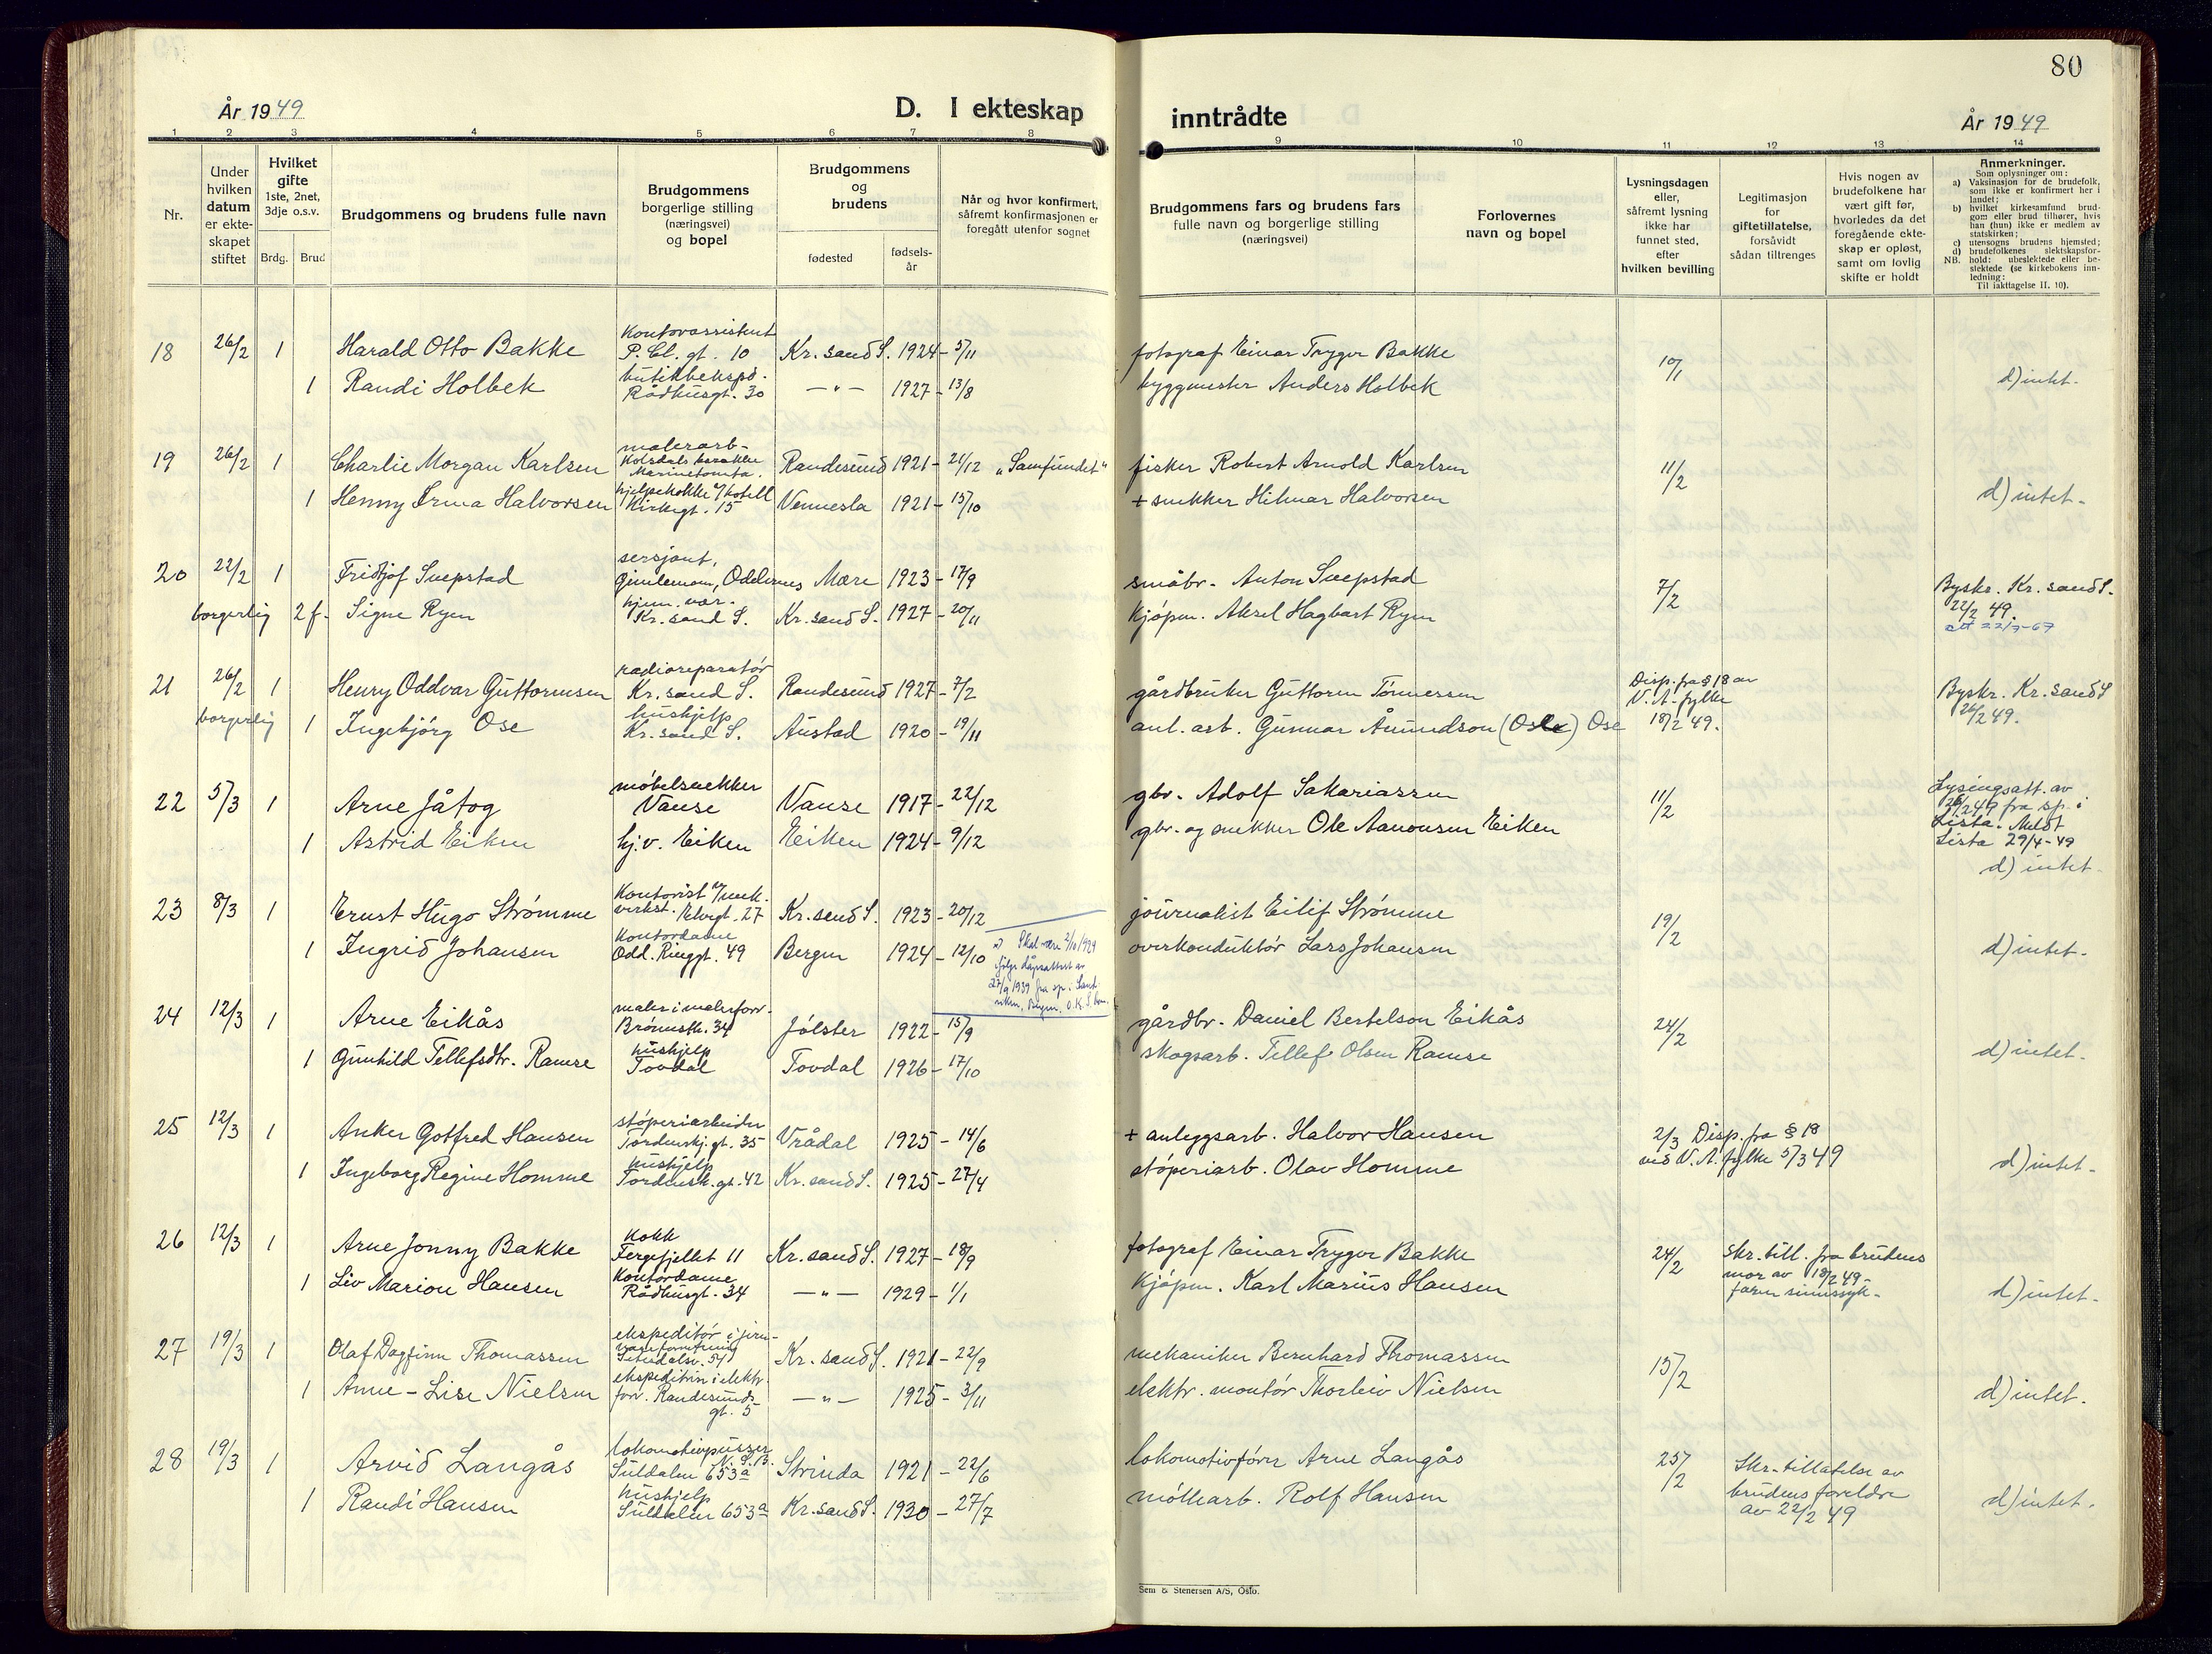 80
År 1949
D. I ekteskap
inntrådte
År 1949
1 2 3 4 5 6 7 8 9 10 11 12 13 14
Nr.
Under hvilken datum er ekteskapet stiftet
Hvilket gifte 1ste, 2net, 3dje o.s.v.
Brdg. Brud
Brudgommens og brudens fulle navn
Brudgommens borgerlige stilling (næringsvei) og bopel
Brudgommens og brudens
fødested
fødsels-år
Når og hvor konfirmert, såfremt konfirmasjonen er foregått utenfor sognet
Brudgommens fars og brudens fars fulle navn og borgerlige stilling (næringsvei)
Forlovernes navn og bopel
Lysningsdagen eller, såfremt lysning ikke har funnet sted, efter hvilken bevilling
Legitimasjon for giftetillatelse, forsåvidt sådan tiltrenges
Hvis nogen av brudefolkene har vært gift før, hvorledes da det foregående ekteskap er opløst, samt om lovlig skifte er holdt
Anmerkninger.
Som oplysninger om:
a) Vaksinasjon for de brudefolk, som ikke er konfirmert her i landet;
b) hvilket kirkesamfund brudgom eller brud tilhører, hvis han (hun) ikke er medlem av statskirken;
c) utensogns brudens hjemsted;
d) brudefolkenes slektskapsforhold: ubeslektede eller beslektede (se kirkebokens innledning:
NB.
Til iakttagelse II, 10).
18 26/2 1 Harald Otto Bakke Kontorassistent P. Cl. gt. 10 Kr.sand S. 1924 - 5/11 fotograf Einar Trygve Bakke 10/1
1 Randi Holbek butikkeksped. Rådhusgt. 30 — " — 1927 - 13/8 byggmester Anders Holbek d) intet.
19 26/2 1 Charlie Morgan Karlsen malerarb. Kolsdals barakke Marinetomta. Randesund 1921 - 21/12 "Samfundet" fisker Robert Arnold Karlsen 11/2
1 Henny Irma Halvorsen hjelpekokke v/hotell Kirkegt. 15 Vennesla 1921 - 15/10 + snekker Hilmar Halvorsen d) intet.
20 22/2 1 Fridtjof Svepstad sersjant, Gimlemoen, Oddernes Mære 1923 - 17/9 småbr. Anton Svepstad 7/2 Byskr. Kr.sand S. 22/2 49.
borgerlig 2 f. Signe Ryen hjem. vær. Kr.sand S. Kr.sand S. 1927 - 20/11 Kjøpm. Aksel Hagbart Ryen
21 26/2 1 Henry Oddvar Guttormsen radioreparatør Kr.sand S. Randesund 1927 - 7/2 gårdbruker Guttorm Tønnessen Disp. fra § 18 av V. A. fylke 18/2 49. Byskr. Kr.sand S 26/2 49.
borgerlig 1 Ingebjørg Ose hushjelp Kr.sand S. Austad 1920 - 19/11 anl. arb. Gunnar Åmundson (Osle) Ose
22 5/3 1 Arne Jåtog møbelsnekker Vanse Vanse 1917 - 22/12 gbr. Adolf Sakariassen 11/2 Lysingsatt. av 26/2 49 fra sp. i Lista. Meldt Lista 29/4-49
1 Astrid Eiken hj.v. Eiken Eiken 1924 - 9/12 gbr. og snekker Ole Aanonsen Eiken d) intet
23 8/3 1 Ernst Hugo Strømme Kontorist v/mek. verkst. Elvegt. 27 Kr.sand S. 1923 - 20/12 journalist Eilif Strømme 19/2
1 Ingrid Johansen Kontordame Odd. Ringgt. 49 Bergen 1924 - 12/10 overkonduktør Lars Johansen d) intet.
Skal være 2/10 1924 ifølge dåpsattest av 27/9 1939 fra sp. i
24 12/3 1 Arne Eikås maler i malerforr. Brønnstk. 34 Jølster 1922 - 15/9 gårdbr. Daniel Bertelson Eikås 24/2
1 Gunhild Tellefsdtr. Ramse hushjelp Tovdal Tovdal 1926 - 17/10 skogsarb. Tellef Olsen Ramse d) intet.
25 12/3 1 Anker Gotfred Hansen støperiarbeider Tordenskj. gt. 35 Vrådal 1925 - 14/6 + anleggsarb. Halvor Hansen 2/3 Disp. fra § 18 ved V. A. fylke 5/3 49
1 Ingeborg Regine Homme hushjelp Tordensk. gt. 42 Kr.sand S. 1925 - 27/4 støperiarb. Olav Homme d) intet.
26 12/3 1 Arne Jonny Bakke Kokk Fergefjellet 11 Kr.sand S. 1927 - 18/9 fotograf Einar Trygve Bakke 24/2 Skr. till. fra brudens mor av 18/2 49. faren sinnssyk.
1 Liv Marion Hansen Kontordame Rådhusgt. 34 — " — 1929 - 1/1 Kjøpm. Karl Marius Hansen d) intet.
27 19/3 1 Olaf Dagfinn Thomassen ekspeditør i jernvareforretning Setesdalsv. 54 Kr.sand S. 1921 - 22/9 mekaniker Bernhard Thomassen 15/2
1 Anne-Lise Nielsen ekspeditrise i elektr. forr. Randesunds gt. 5 — " — 1925 - 3/11 elektr. montør Thorleiv Nielsen d) intet.
28 19/3 1 Arvid Langås lokomotivpusser N. S. B. Suldalen 653a Strinda 1921 - 22/6 lokomotivfører Arne Langås 25/2 Skr. tillatelse av brudens foreldre av 22/2 49
1 Randi Hansen hushjelp Suldalen 653a Kr.sand S. 1930 - 27/7 mølleарb. Rolf Hansen d) intet.
Sem & Stenersen A/S, Oslo.